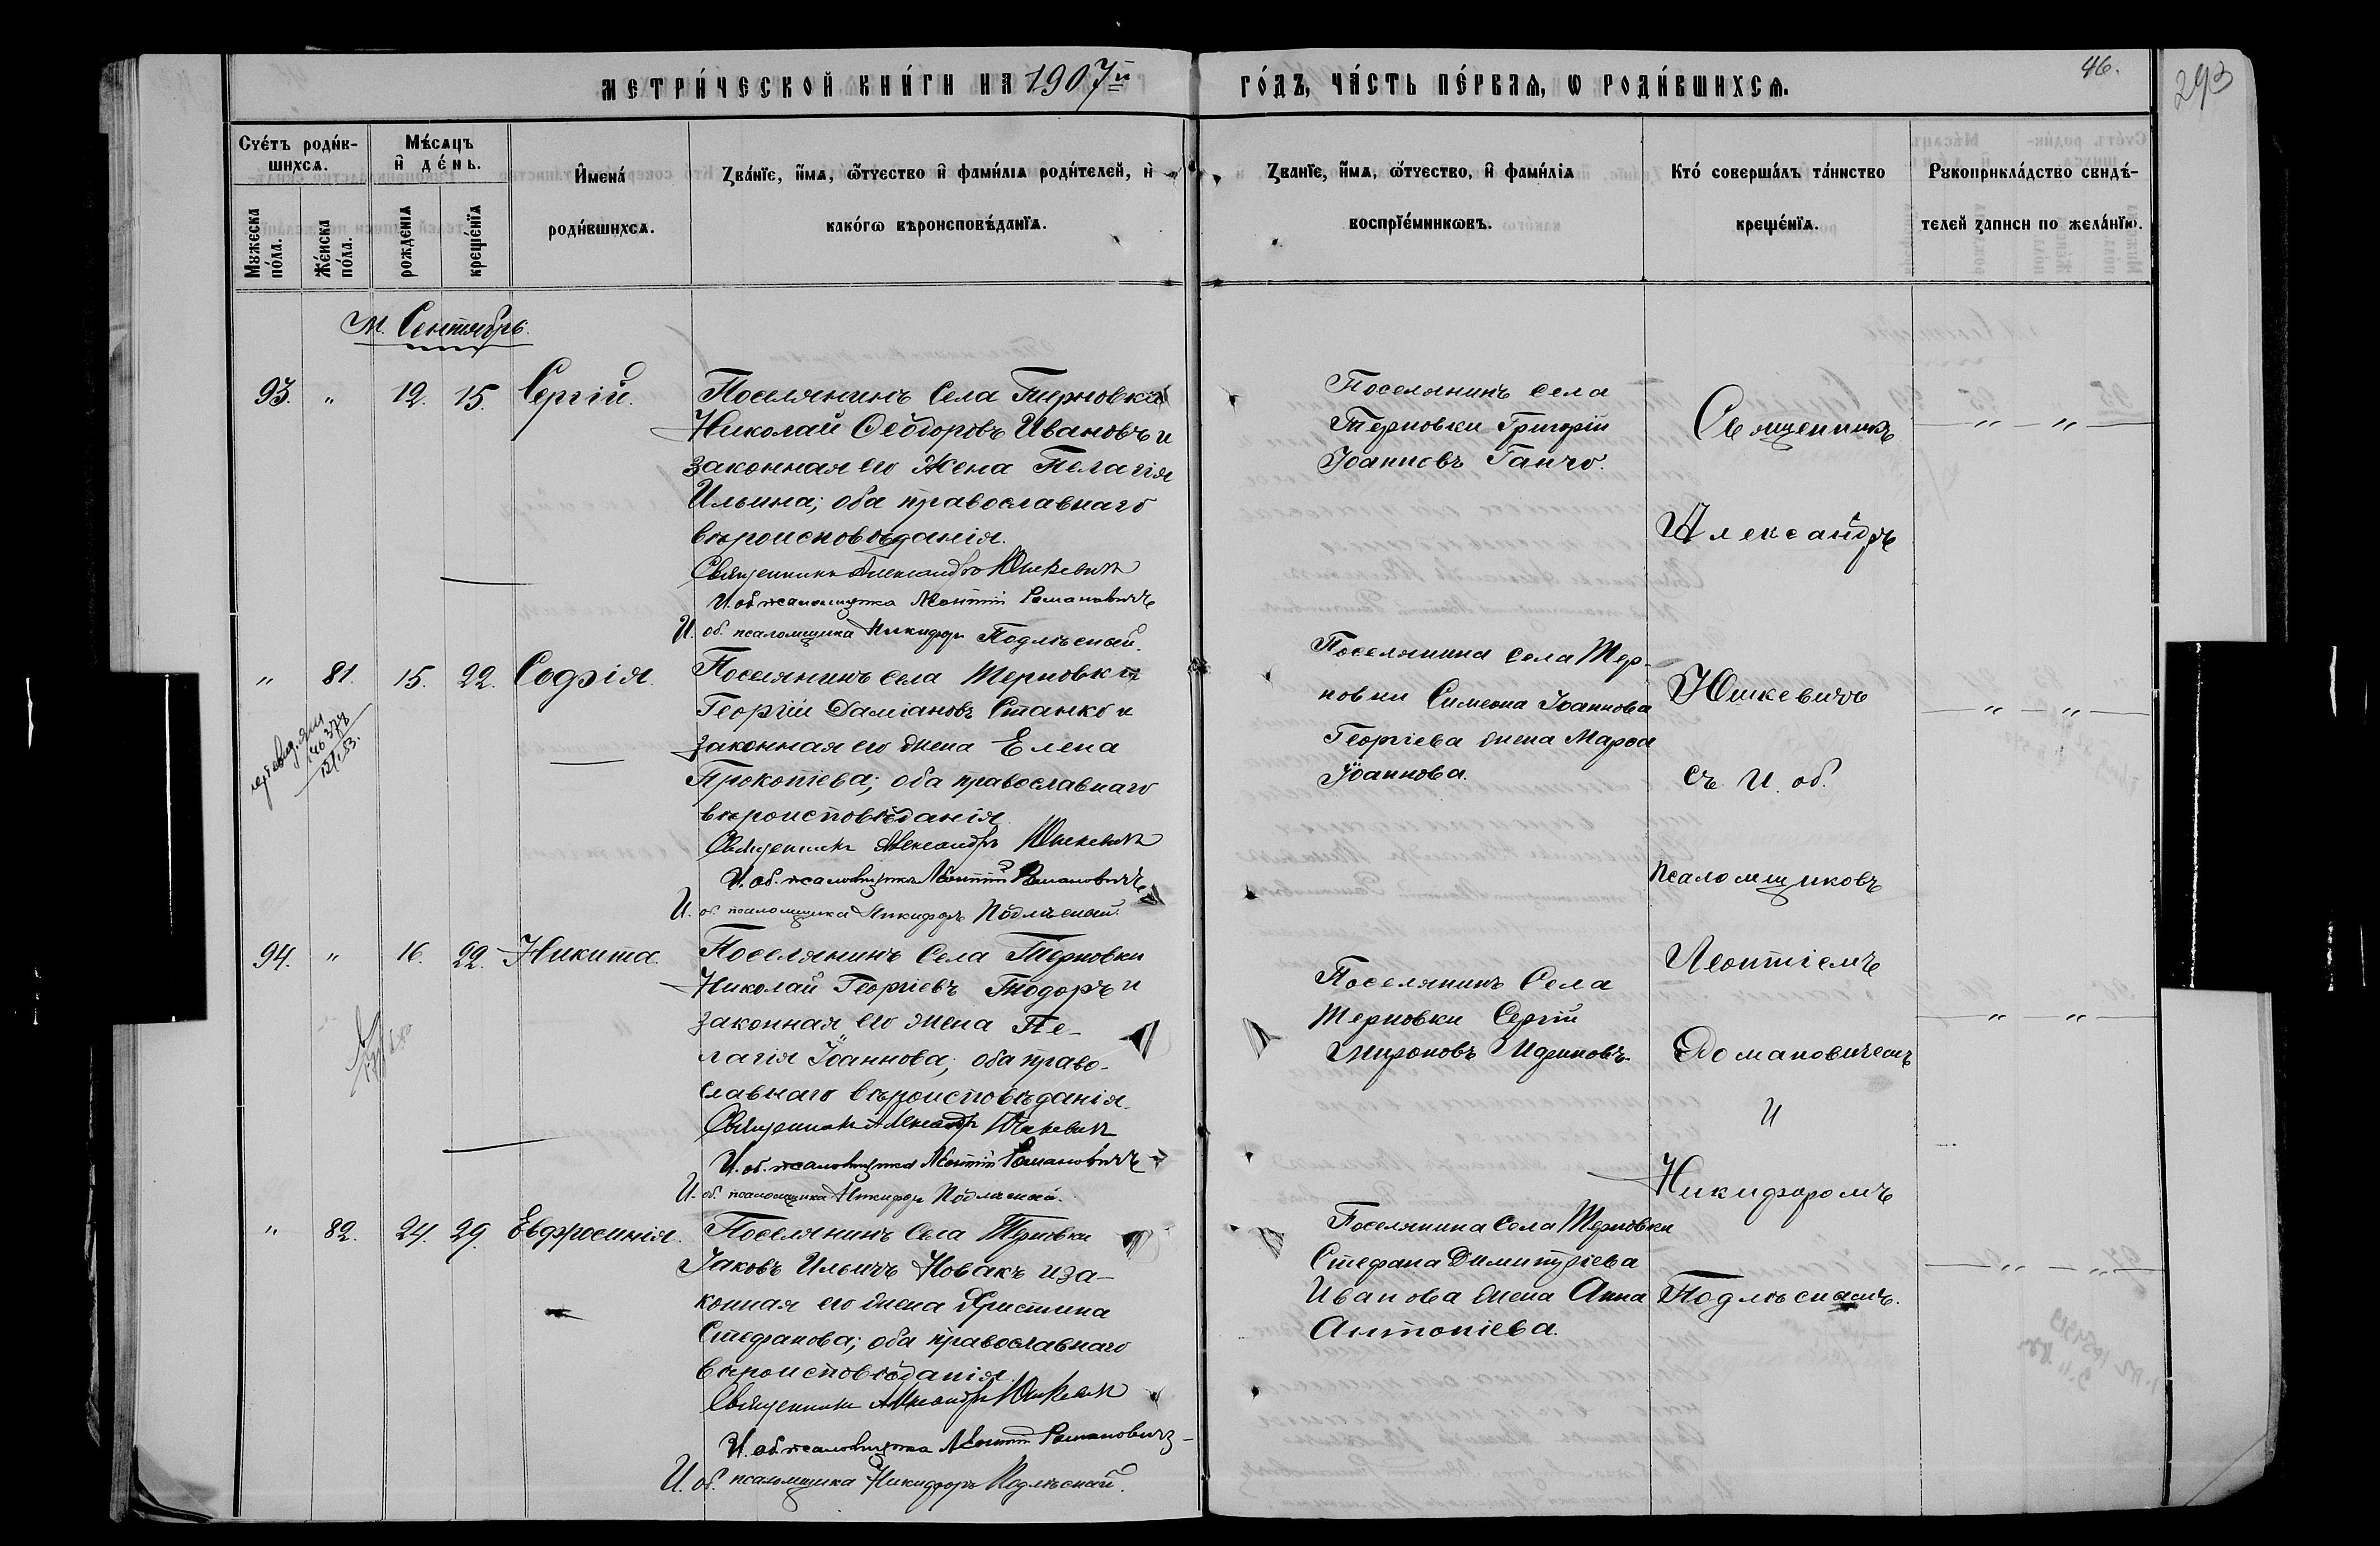 МЕТРИ́ЧЕСКОЙ КНИ́ГИ НА 1907й
ГО́ДЪ, ЧА́СТЬ ПЕ́РВАѦ, Ѡ РОДИ́ВШИХСѦ.
46.
293
Счéтъ роди́в-
шихсѧ.
Мꙋжеска по́ла.
Же́нска по́ла.
Мѣ́сѧцъ и҆ де́нь.
рожде́нїѧ
креще́нїѧ
И҆мена́
роди́вшихсѧ.
Зва́нїе, и҆́мѧ, ѻ҆́тчество и҆ фами́лїѧ роди́телей, и҆
како́гѡ вѣроисповѣ́данїѧ.
Зва́нїе, и҆́мѧ, ѻ҆́тчество, и҆ фами́лїѧ
воспрїе́мникѡвъ.
Кто́ соверша́лъ та́инство
креще́нїѧ.
Рꙋкоприкла́дство свидѣ́-
телей записи по жела́нїю.
М. Сентябрь.
93. " 12. 15. Сергій.
Поселянинъ села Терновки
Николай Ѳеодоровъ Ивановъ и
законная его жена Пелагія
Ильина; оба православнаго
вѣроисповѣданія.
Священникъ Александръ Юшкевичъ
И. об. псаломщика Леонтій Романовичъ
И. об. псаломщика Никифоръ Подлѣсный.
Поселянинъ села
Терновки Григорій
Іоанновъ Ганчо.
" 81. 15. 22. Софія.
Поселянинъ села Терновки
Георгій Даміановъ Станко и
законная его жена Елена
Прокопіева; оба православнаго
вѣроисповѣданія.
Священникъ Александръ Юшкевичъ
И. об. псаломщика Леонтій Романовичъ
И. об. псаломщика Никифоръ Подлѣсный.
Поселянина села Тер-
новки Симеона Іоаннова
Георгіева жена Марѳа
Іоаннова.
94. " 16. 22. Никита.
Поселянинъ села Терновки
Николай Георгіевъ Тодоръ и
законная его жена Пе-
лагія Іоаннова; оба право-
славнаго вѣроисповѣданія.
Священникъ Александръ Юшкевичъ
И. об. псаломщика Леонтій Романовичъ
И. об. псаломщика Никифоръ Подлѣсный.
Поселянинъ села
Терновки Сергій
Мироновъ
" 82. 24. 29. Евфросинія.
Поселянинъ села Терновки
Іаковъ Ильичъ Новакъ и за-
конная его жена Христина
Стефанова; оба православнаго
вѣроисповѣданія.
Священникъ Александръ Юшкевичъ
И. об. псаломщика Леонтій Романовичъ
И. об. псаломщика Никифоръ Подлѣсный.
Поселянина села Терновки
Стефана Димитріева
Иванова жена Анна
Антоніева.
Священникъ
Александръ
Юшкевичъ
съ И. об.
псаломщиковъ
Леонтіемъ
Романовичемъ
и
Никифоромъ
Подлѣснымъ.
— " — " —
— " — " —
— " — " —
— " — " —